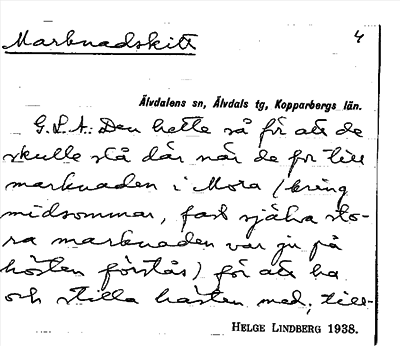 Marknadskitt 4
Älvdalens sn, Älvdals tg, Kopparbergs län.
G.L.A.: Den hette så för att de
skulle slå där när de for till
marknaden i Mora (kring
midsommar, fast själva sto-
ra marknaden var ju på
hösten förstås) för att ha
och stilla hästen med; till-
HELGE LINDBERG 1938.